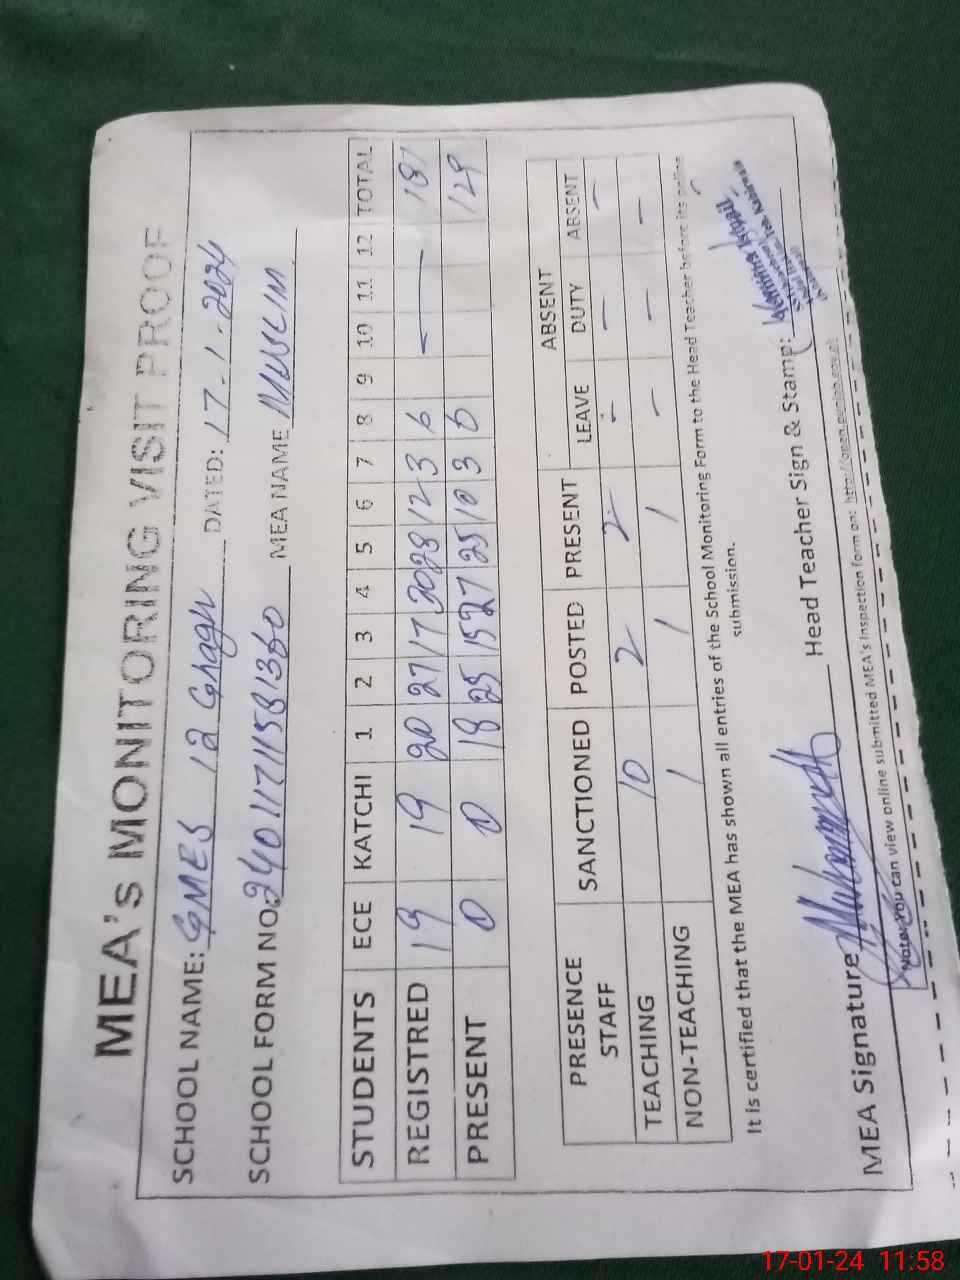 MEA's MONITORING VISIT PROOF
SCHOOL NAME: GMES 12 Ghagh DATED: 17-1-2024
SCHOOL FORM NO. 24011711581360 MEA NAME MUSLIM
STUDENTS ECE KATCHI 1 2 3 4 5 6 7 8 9 10 11 12 TOTAL
REGISTRED 19 19 20 27 17 30 28 12 3 6 — — 181
PRESENT 0 0 18 25 15 27 25 10 3 6 129
PRESENCE STAFF SANCTIONED POSTED PRESENT ABSENT
LEAVE DUTY ABSENT
TEACHING 10 2 2 - - -
NON-TEACHING 1 1 1 - - -
It is certified that the MEA has shown all entries of the School Monitoring Form to the Head Teacher before its online
submission.
MEA Signature Head Teacher Sign & Stamp:
Note: You can view online submitted MEA's Inspection form on: http://open.punjab.gov.pk
17-01-24 11:58